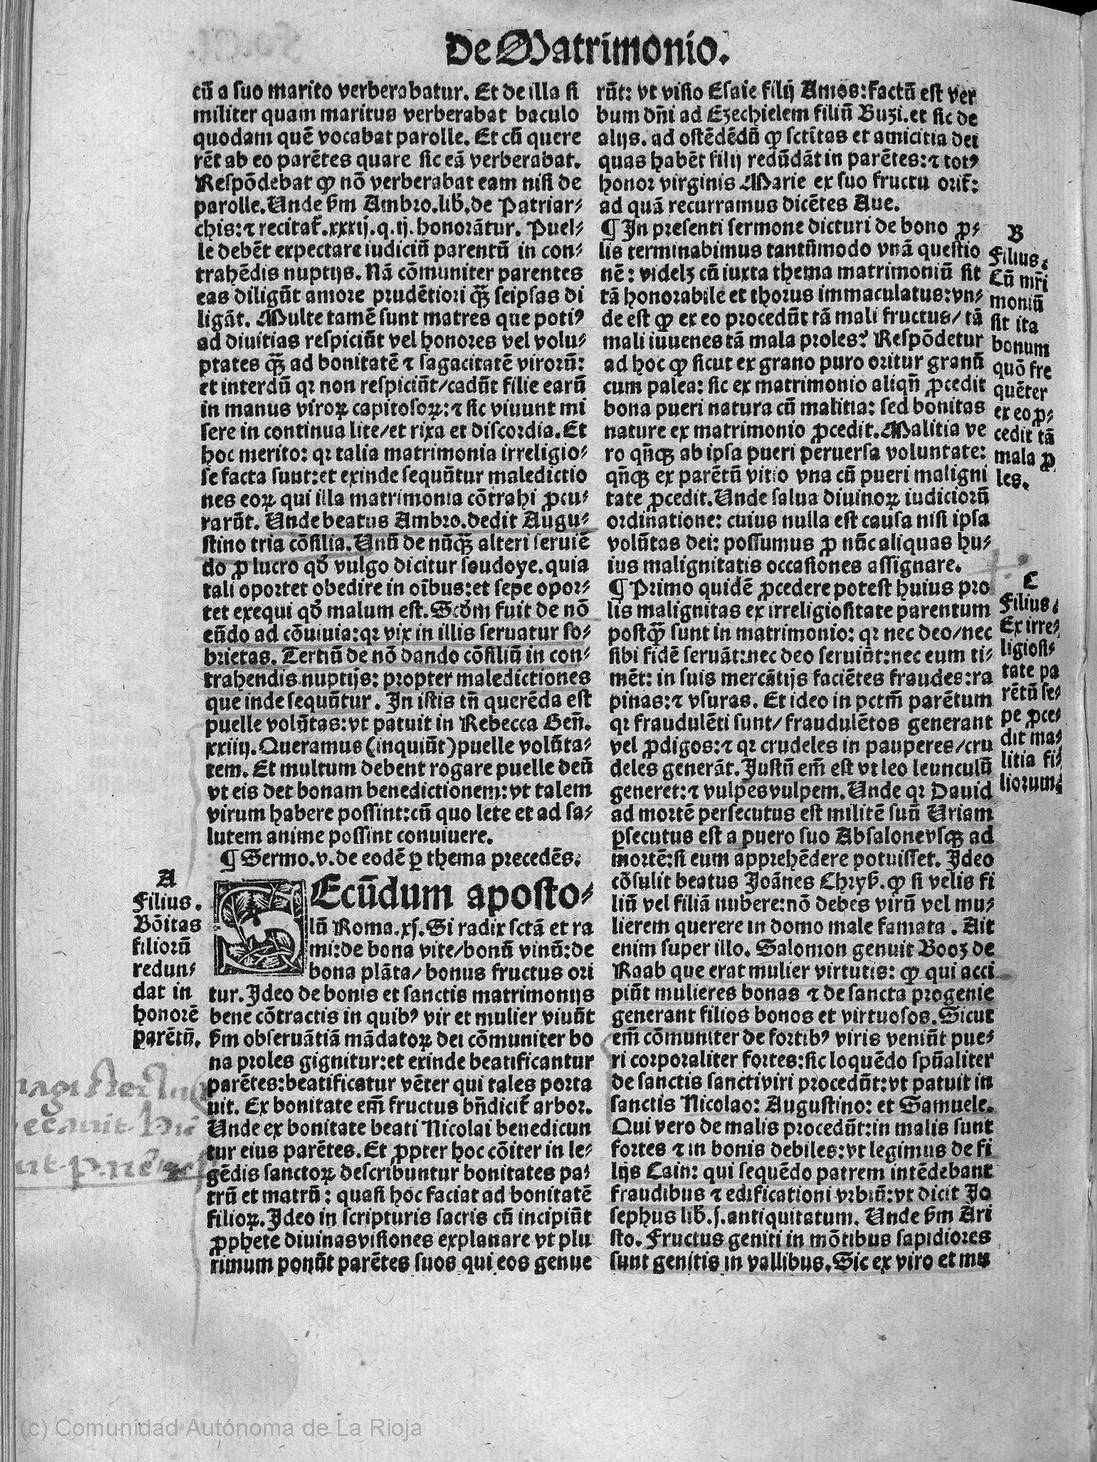 De Matrimonio.
cũ a suo marito verberabatur. Et de illa si
militer quam maritus verberabat baculo
quodam quẽ vocabat parolle. Et cũ quere
rẽt ab eo parẽtes quare sic eã verberabat.
Respõdebat ꝙ nõ verberabat eam nisi de
parolle. Unde ẜm Ambro. lib. de Patriar⸗
chis: ⁊ recitaꝉ. xxxij. q. ij. honorãtur. Puel⸗
le debẽt expectare iudiciũ parentũ in con⸗
trahẽdis nuptijs. Nã cõmuniter parentes
eas diligũt amore prudẽtiori q̃ȝ seipsas di
ligãt. Multe tamẽ sunt matres que potiꝰ
ad diuitias respiciũt vel honores vel volu⸗
ptates q̃ȝ ad bonitatẽ ⁊ sagacitatẽ virorũ:
et interdũ qꝛ non respiciũt/cadũt filie earũ
in manus viroꝝ capitosoꝝ: ⁊ sic viuunt mi
sere in continua lite/et rixa et discordia. Et
hoc merito: qꝛ talia matrimonia irreligio⸗
se facta sunt: et exinde sequũtur maledictio
nes eoꝝ qui illa matrimonia cõtrahi ꝓcu⸗
rarũt. Unde beatus Ambro. dedit Augu⸗
stino tria cõsilia. Unũ de nũq̃ȝ alteri seruiẽ
do ꝓ lucro qð vulgo dicitur soudoye. quia
tali oportet obedire in oĩbus: et sepe opor⸗
tet exequi qð malum est. Scðm fuit de nõ
eũdo ad cõuiuia: qꝛ vix in illis seruatur so⸗
brietas. Tertiũ de nõ dando cõsiliũ in con⸗
trahendis nuptijs: propter maledictiones
que inde sequũtur. In istis tñ querẽda est
puelle volũtas: vt patuit in Rebecca Geñ.
xxiiij. Queramus (inquiũt) puelle volũta⸗
tem. Et multum debent rogare puelle deũ
vt eis det bonam benedictionem: vt talem
virum habere possint: cũ quo lete et ad sa⸗
lutem anime possint conuiuere.
¶ Sermo. v. de eodẽ ꝑ thema precedẽs.
A
Filius.
Bõitas
filiorũ
redun⸗
dat in
honorẽ
parẽtũ.
SEcũdum aposto⸗
lũ Roma. xj. Si radix sctã et ra
mi: de bona vite/bonũ vinũ: de
bona plãta/bonus fructus ori
tur. Ideo de bonis et sanctis matrimonijs
bene cõtractis in quibꝰ vir et mulier viuũt
ẜm obseruãtiã mãdatoꝝ dei cõmuniter bo
na proles gignitur: et exinde beatificantur
parẽtes: beatificatur vẽter qui tales porta
uit. Ex bonitate em̃ fructus bñdiciꝉ arbor.
Unde ex bonitate beati Nicolai benedicun
tur eius parẽtes. Et ꝓpter hoc cõiter in le⸗
gẽdis sanctoꝝ describuntur bonitates pa⸗
trũ et matrũ: quasi hoc faciat ad bonitatẽ
filioꝝ. Ideo in scripturis sacris cũ incipiũt
ꝓphete diuinas visiones explanare vt plu
rimum ponũt parẽtes suos qui eos genue
rũt: vt visio Esaie filij Amos: factũ est ver
bum dñi ad Ezechielem filiũ Buzi. et sic de
alijs. ad ostẽdẽdũ ꝙ sctĩtas et amicitia dei
quas habẽt filij redũdãt in parẽtes: ⁊ totꝰ
honor virginis Marie ex suo fructu oriꝉ:
ad quã recurramus dicẽtes Aue.
¶ In presenti sermone dicturi de bono ꝓ⸗
lis terminabimus tantũmodo vnã questio
nẽ: videlȝ cũ iuxta thema matrimoniũ sit
tã honorabile et thorus immaculatus: vn⸗
de est ꝙ ex eo procedũt tã mali fructus/tã
mali iuuenes tã mala proles? Respõdetur
ad hoc ꝙ sicut ex grano puro oritur granũ
cum palea: sic ex matrimonio aliqñ ꝓcedit
bona pueri natura cũ malitia: sed bonitas
nature ex matrimonio ꝓcedit. Malitia ve
ro qñqȝ ab ipsa pueri peruersa voluntate:
qñqȝ ex parẽtũ vitio vna cũ pueri maligni
tate ꝓcedit. Unde salua diuinoꝝ iudiciorũ
ordinatione: cuius nulla est causa nisi ipsa
volũtas dei: possumus ꝓ nũc aliquas hu⸗
ius malignitatis occasiones assignare.
¶ Primo quidẽ ꝓcedere potest huius pro
lis malignitas ex irreligiositate parentum
postq̃ȝ sunt in matrimonio: qꝛ nec deo/nec
sibi fidẽ seruãt: nec deo seruiũt: nec eum ti⸗
mẽt: in suis mercãtijs faciẽtes fraudes: ra
pinas: ⁊ vsuras. Et ideo in pctm̃ parẽtum
qꝛ fraudulẽti sunt/fraudulẽtos generant
vel ꝓdigos: ⁊ qꝛ crudeles in pauperes/cru
deles generãt. Justũ em̃ est vt leo leunculũ
generet: ⁊ vulpes vulpem. Unde qꝛ Dauid
ad mortẽ persecutus est militẽ suũ Uriam
ꝑsecutus est a puero suo Absalone vsqȝ ad
mortẽ: si eum apprehẽdere potuisset. Ideo
cõsulit beatus Joãnes Chryẜ. ꝙ si velis fi
liũ vel filiã nubere: nõ debes virũ vel mu⸗
lierem querere in domo male famata. Ait
enim super illo. Salomon genuit Booz de
Raab que erat mulier virtutis: ꝙ qui acci
piũt mulieres bonas ⁊ de sancta progenie
generant filios bonos et virtuosos. Sicut
em̃ cõmuniter de fortibꝰ viris veniũt pue⸗
ri corporaliter fortes: sic loquẽdo spũaliter
de sanctis sancti viri procedũt: vt patuit in
sanctis Nicolao: Augustino: et Samuele.
Qui vero de malis procedũt: in malis sunt
fortes ⁊ in bonis debiles: vt legimus de fi
lijs Cain: qui sequẽdo patrem intẽdebant
fraudibus ⁊ edificationi vrbiũ: vt dicit Jo
sephus lib. j. antiquitatum. Unde ẜm Ari
sto. Fructus geniti in mõtibus sapidiores
sunt genitis in vallibus. Sic ex viro et mu
B
Filius.
Cũ mr̃i
moniũ
sit ita
bonum
quõ fre
quẽter
ex eo ꝓ⸗
cedit tã
mala ꝓ
les.
C
Filius.
Ex irre⸗
ligiosi⸗
tate pa
rẽtũ se⸗
pe ꝓce⸗
dit ma⸗
litia fi⸗
liorum.
(c) Comunidad Autónoma de La Rioja